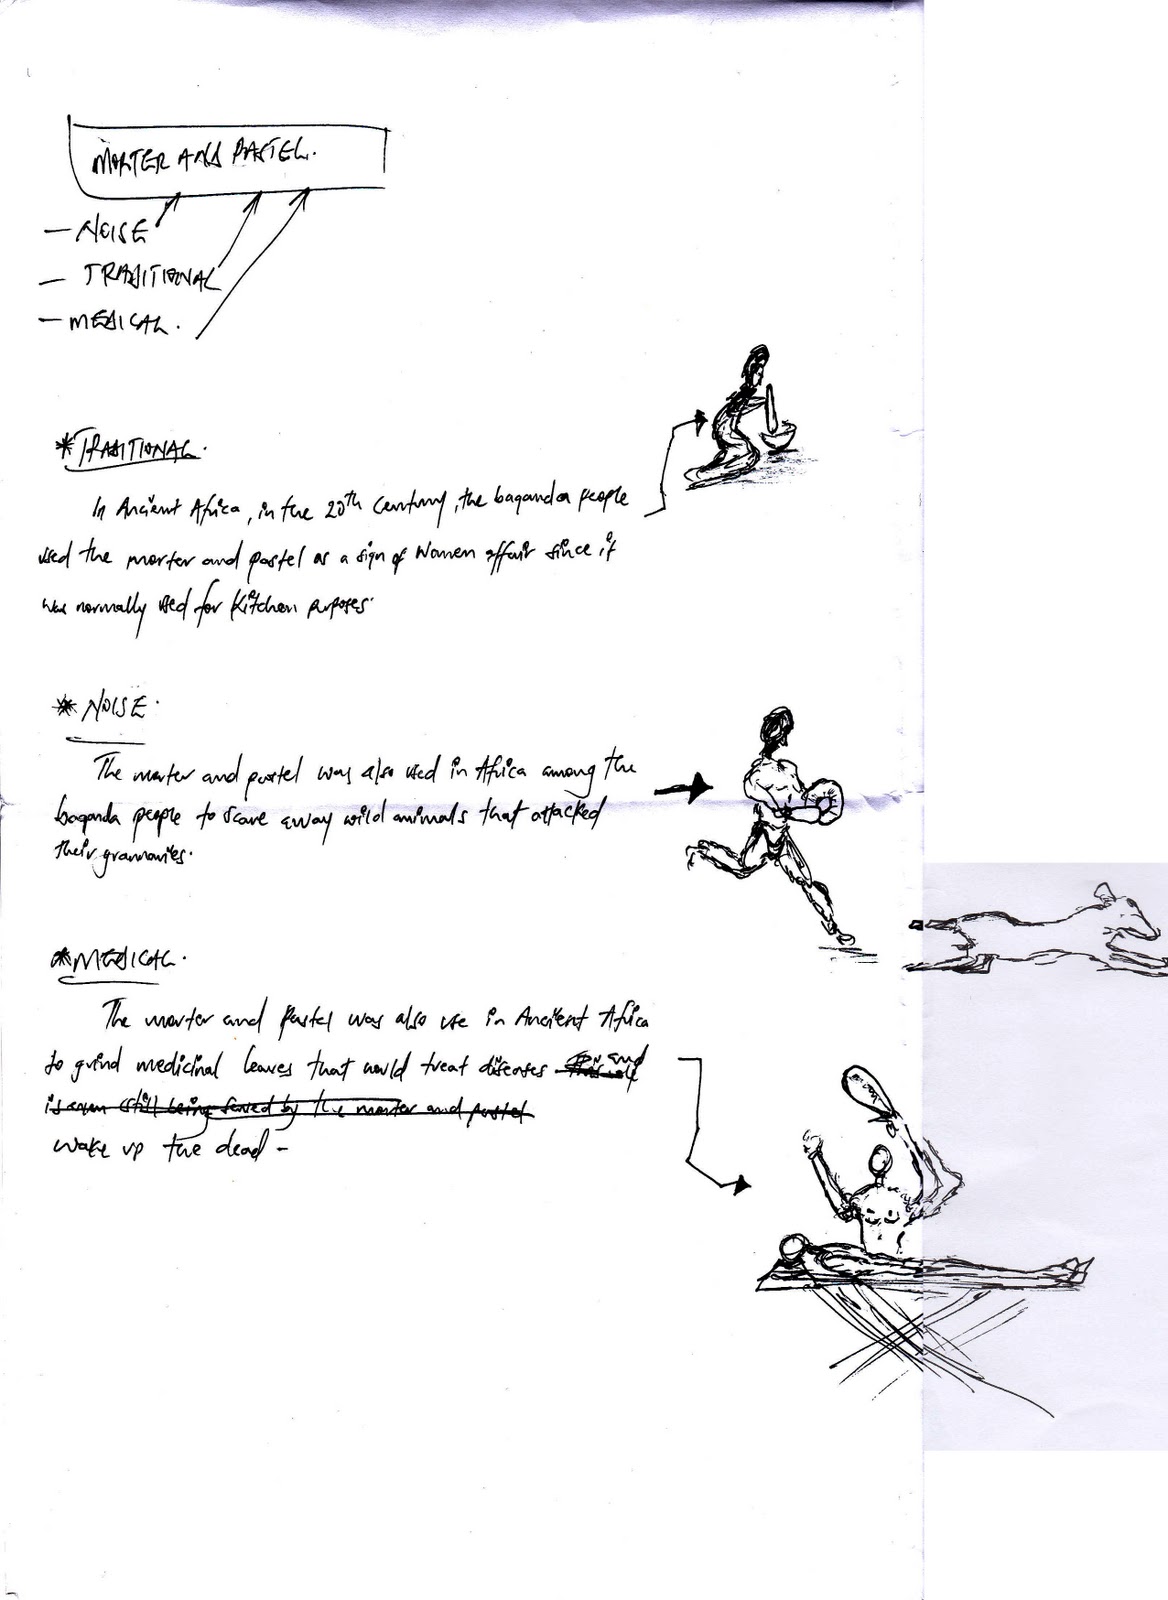 MORTER AND PASTEL.
- NOISE
- TRADITIONAL
- MEDICAL.
* TRADITIONAL.
In Ancient Africa, in the 20th Century, the baganda people
used the morter and pastel as a sign of Women affair since it
was normally used for Kitchen purposes.
* NOISE.
The morter and pastel was also used in Africa among the
baganda people to scare away wild animals that attacked
their grannaries.
* MEDICAL.
The morter and pastel was also use in Ancient Africa
to grind medicinal leaves that would treat diseases and
is even still being served by the morter and pastel
wake up the dead -